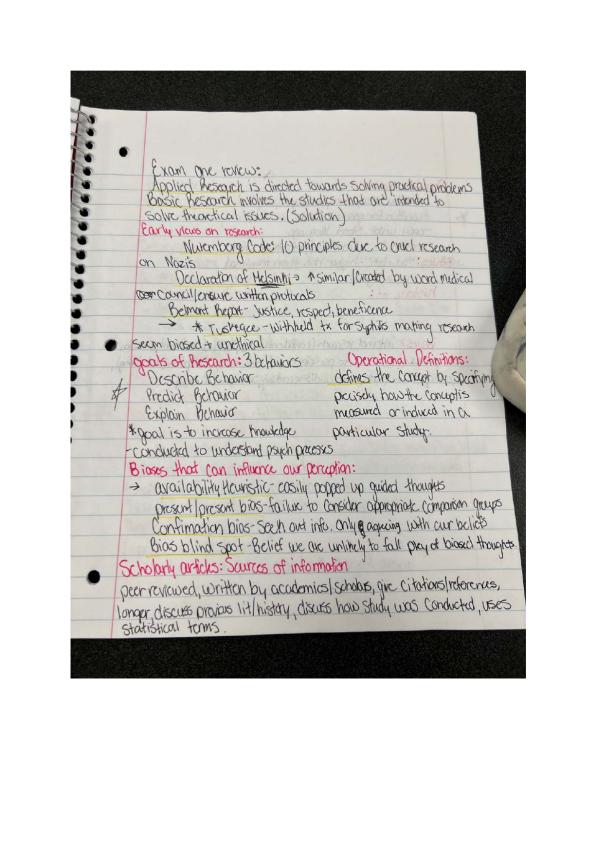 Exam one review:
Applied Research is directed towards solving practical problems
Basic Research involves the studies that are intended to
solve theoretical issues. (Solution)
Early views on research:
Nuremberg Code: 10 principles due to cruel research
on Nazis
Declaration of Helsinki → ↑ similar/created by word medical
council/ensure written protocals
Belmont Report - Justice, respect, beneficence
→ * Tuskegee - withheld tx for syphilis making research
seem biased + unethical
goals of Research: 3 behaviors
Describe Behavior
Predict Behavior
Explain Behavior
*goal is to increase knowledge
-conducted to understand psych processes
Operational Definitions:
defines the concept by specifying
precisely how the concept is
measured or induced in a
particular study.
Biases that can influence our perception:
→ availability Heuristic - easily popped up guided thoughts
present/present bias - failure to consider appropriate comparison groups
Confimation bias - Seek out info. only agreeing with our beliefs
Bias blind spot - Belief we are unlikely to fall prey of biased thoughts.
Scholarly articles: Sources of information
peer reviewed, written by academics/scholars, give citations/references,
longer discuss previous lit/history, discuss how study was conducted, uses
statistical terms.